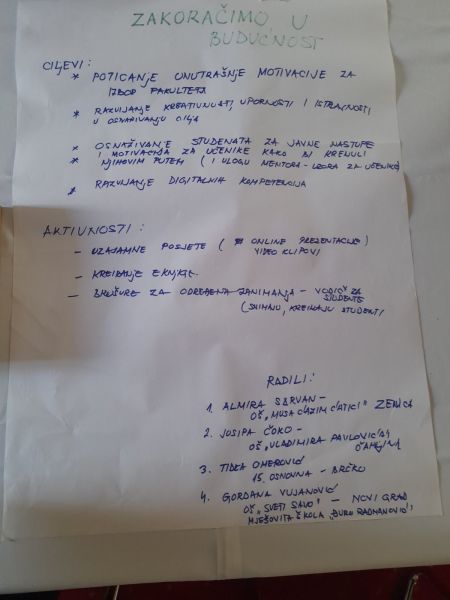 ZAKORAČIMO U
BUDUĆNOST
CILJEVI:
* POTICANJE UNUTRAŠNJE MOTIVACIJE ZA
IZBOR FAKULTETA
* RAZVIJANJE KREATIVNOSTI, UPORNOSTI I ISTRAJNOSTI
U OSTVARIVANJU CILJA
* OSNAŽIVANJE STUDENATA ZA JAVNE NASTUPE
* MOTIVACIJA ZA UČENIKE KAKO BI KRENULI
NJIHOVIM PUTEM (I ULOGU MENTORA - UZORA ZA UČENIKE)
* RAZVIJANJE DIGITALNIH KOMPETENCIJA
AKTIVNOSTI:
- UZAJAMNE POSJETE ( ONLINE PREZENTACIJE)
VIDEO KLIPOVI
- KREIRANJE E KNJIGE
- BROŠURE ZA ODREĐENA ZANIMANJA - VODIČ ZA
STUDENTE
(SNIMAJU, KREIRAJU STUDENTI
RADILI:
1. ALMIRA SARVAN -
OŠ "MUSA ĆAZIM ĆATIĆ" ZENICA
2. JOSIPA ČOKO -
OŠ "VLADIMIRA PAVLOVIĆA"
ČAPLJINA
3. OMEROVIĆ
15. OSNOVNA - BRČKO
4. GORDANA VUJANOVIĆ
OŠ "SVETI SAVO" - NOVI GRAD
MJEŠOVITA ŠKOLA "ĐURO RADMANOVIĆ"